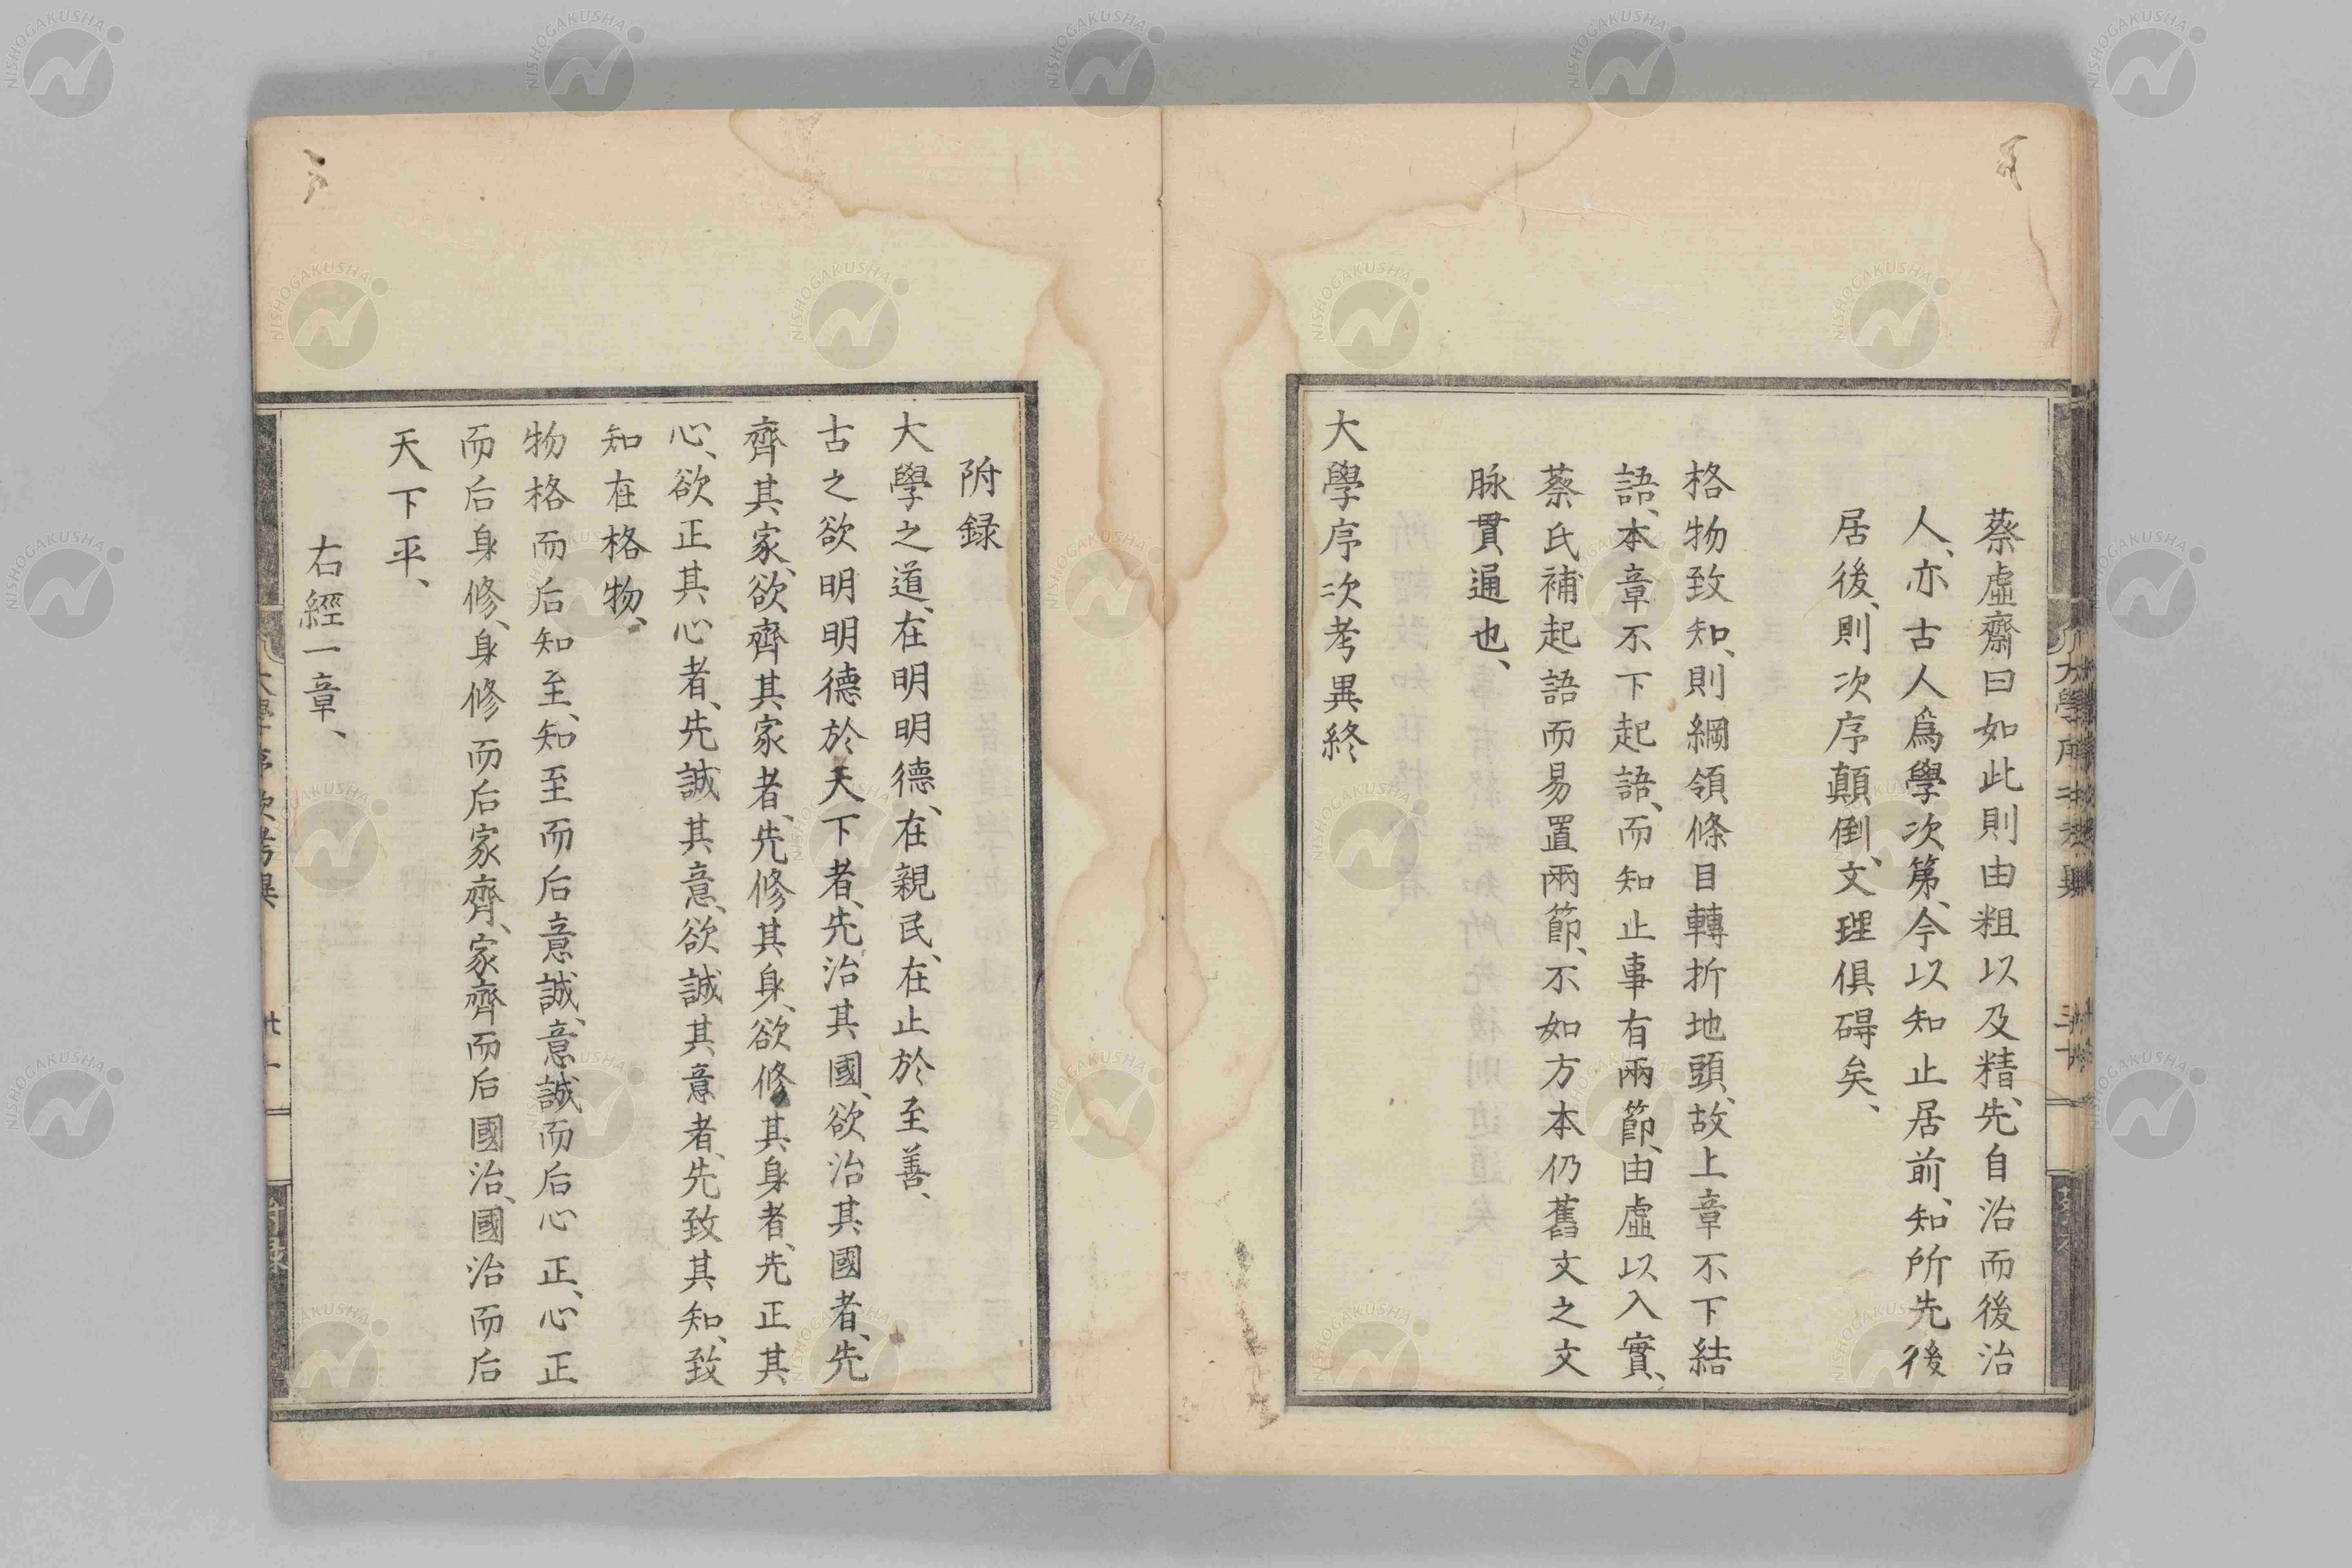 蔡虛齋曰如此則由粗以及精、先自治而後治
人、亦古人爲學次第、今以知止居前、知所先後
居後、則次序顛倒、文理俱碍矣、
格物致知、則綱領條目轉折地頭、故上章不下結
語、本章不下起語、而知止事有兩節、由虛以入實、
蔡氏補起語而易置兩節、不如方本仍舊文之文
脉貫通也、
大學序次考異終
附録
大學之道、在明明德、在親民、在止於至善、
古之欲明明德於天下者、先治其國、欲治其國者、先
齊其家、欲齊其家者、先修其身、欲修其身者、先正其
心、欲正其心者、先誠其意、欲誠其意者、先致其知、致
知在格物、
物格而后知至、知至而后意誠、意誠而后心正、心正
而后身修、身修而后家齊、家齊而后國治、國治而后
天下平、
右經一章、
大學序次考異
廿一
附録
NISHOGAKUSHA